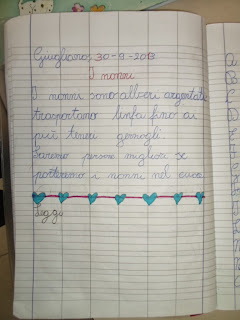 Giugliano, 30-9-2013
I nonni
I nonni sono alberi argentati
trasportano linfa fino ai
più teneri germogli.
Saremo persone migliori se
porteremo i nonni nel cuore
Leggo